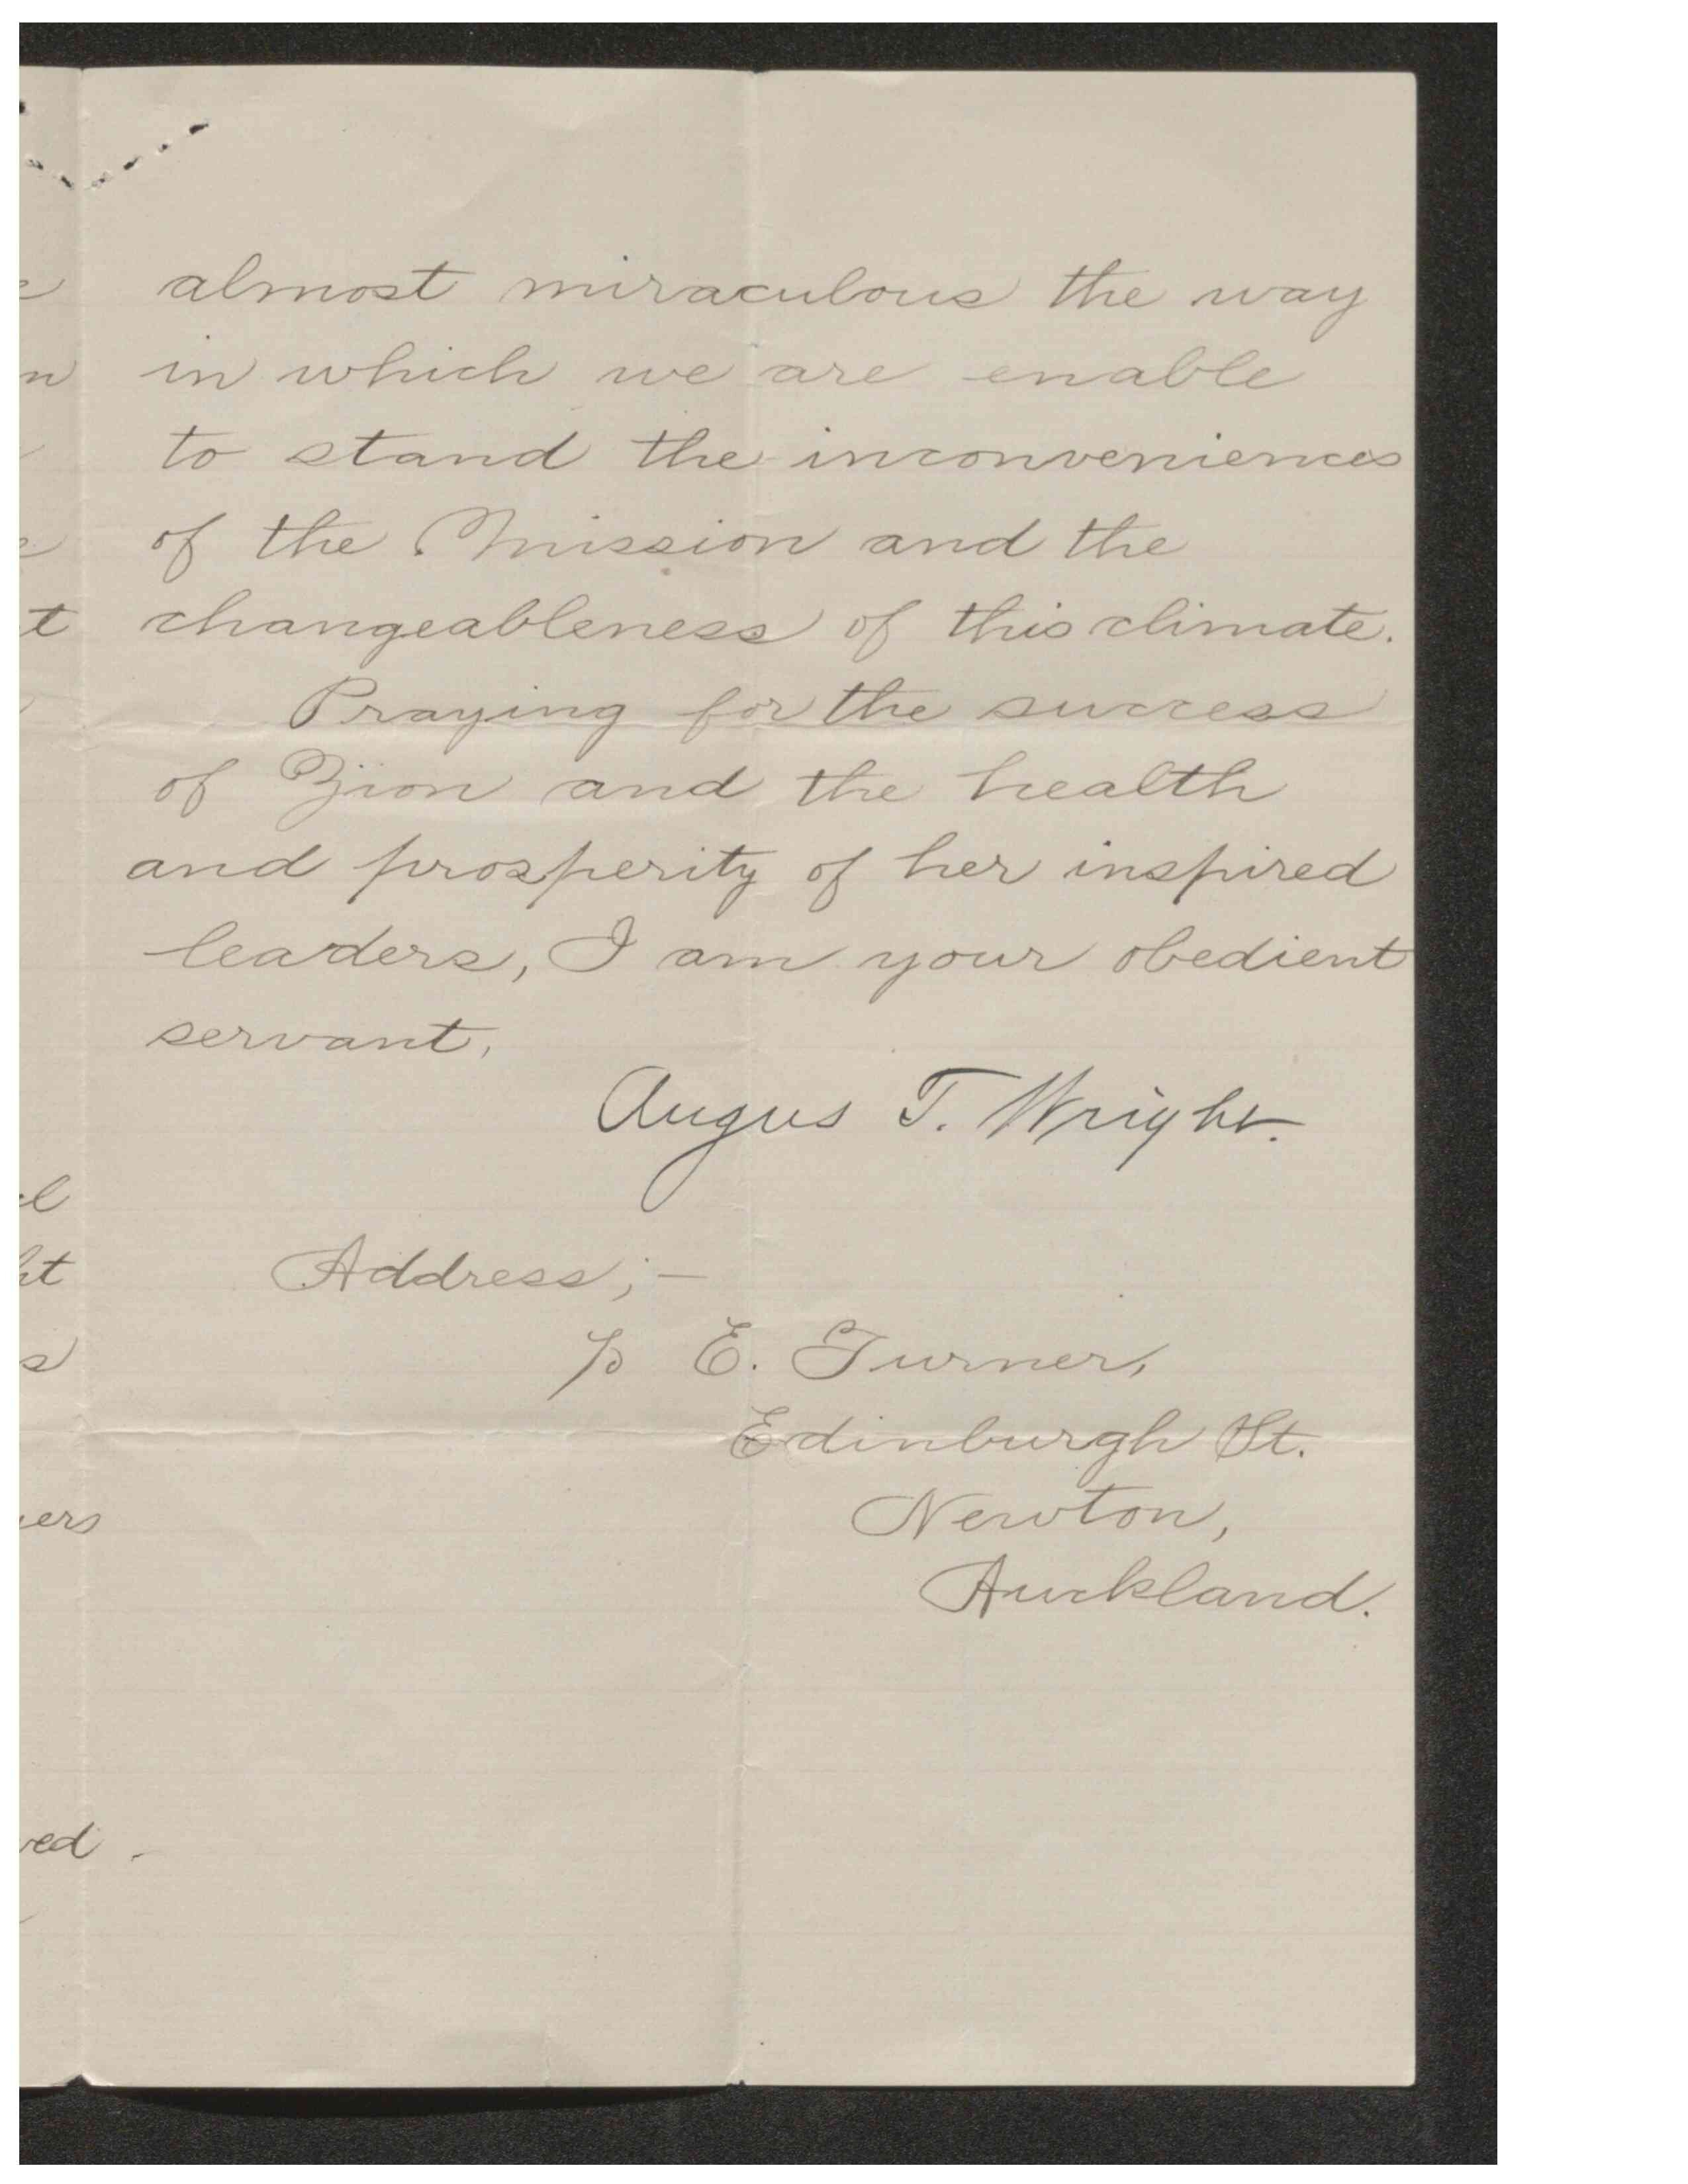 almost miraculous the way
in which we are enable
to stand the inconveniences
of the Mission and the
changeableness of this climate.
Praying for the success
of Zion and the health
and prosperity of her inspired
leaders, I am your obedient
servant,
Angus T. Wright.
Address;—
E. Turner,
Edinburgh St.
Newton,
Auckland.